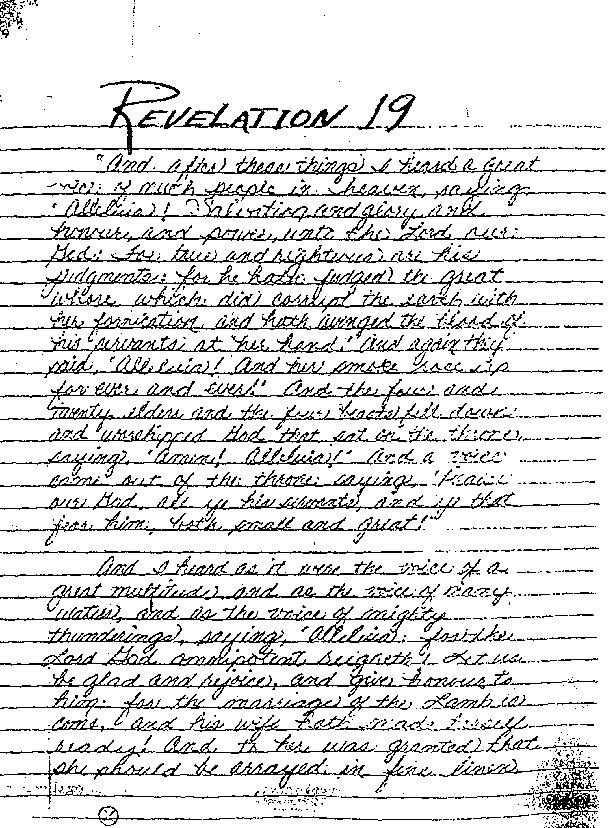 REVELATION 19
"And after these things I heard a great
voice of much people in heaven, saying,
'Alleluia! Salvation and glory and
honour, and power, unto the Lord our
God: For true and righteous are his
judgments: for he hath judged the great
whore, which did corrupt the earth with
her fornication, and hath avenged the blood of
his servants at her hand.' And again they
said, 'Alleluia! And her smoke rose up
for ever and ever!' And the four and
twenty elders and the four beasts fell down
and worshipped God that sat on the throne,
saying, 'Amen! Alleluia!' And a voice
came out of the throne, saying, 'Praise
our God, all ye his servants, and ye that
fear him, both small and great!'
And I heard as it were the voice of a
great multitude, and as the voice of many
waters, and as the voice of mighty
thunderings, saying, 'Alleluia: for the
Lord God omnipotent reigneth! Let us
be glad and rejoice, and give honour to
him: for the marriage of the Lamb is
come, and his wife hath made herself
ready! And to her was granted that
she should be arrayed in fine linen,